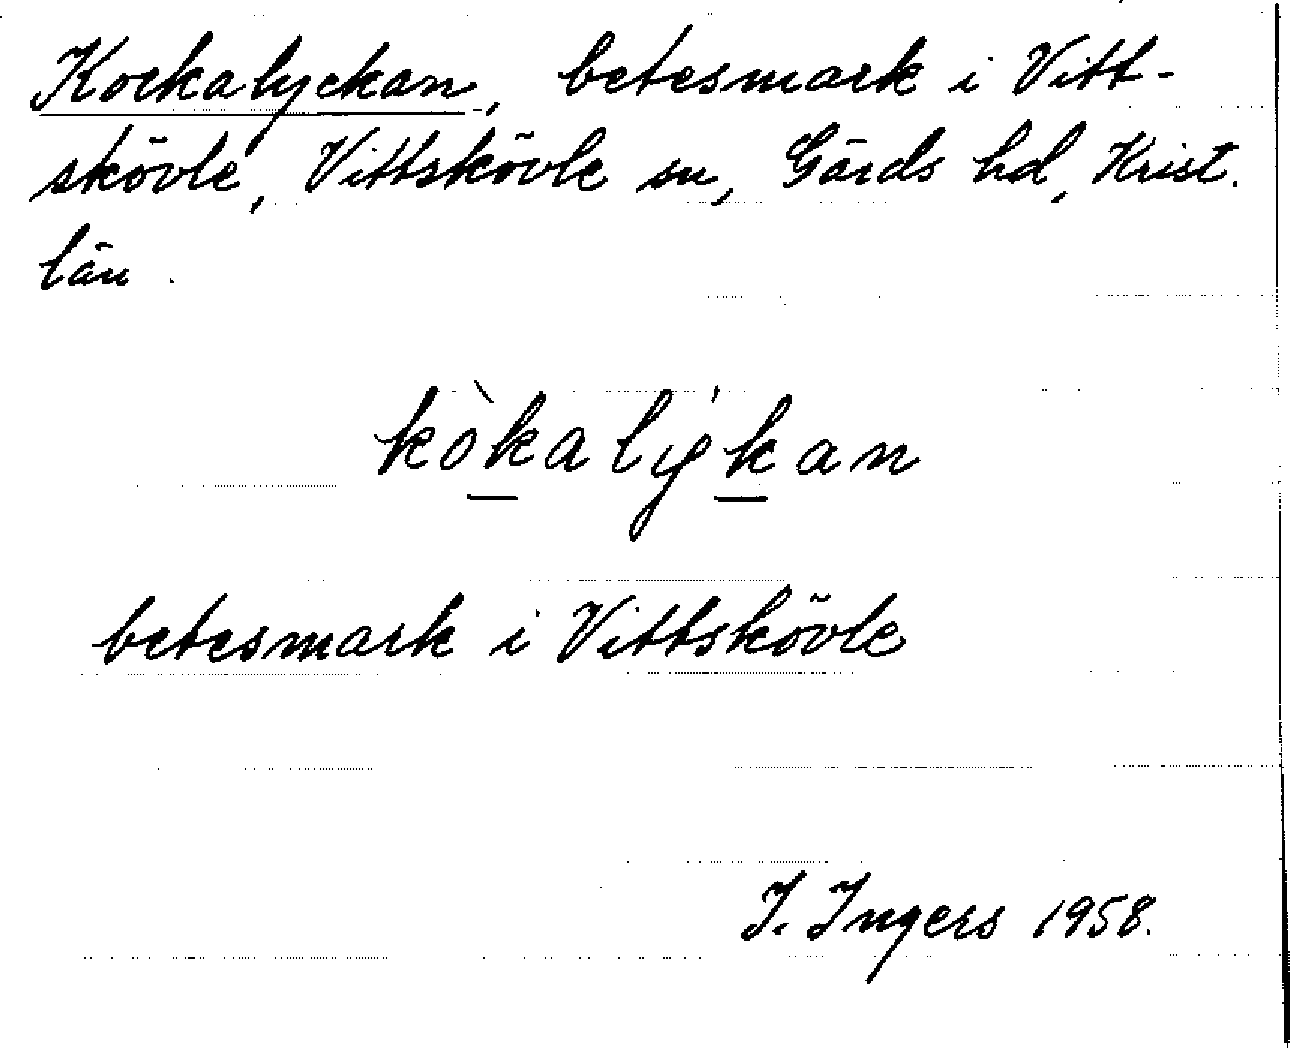 Kockalyckan, betesmark i Vitt-
skövle, Vittskövle sn, Gärds hd, Krist.
län.
kòkalýkan
betesmark i Vittskövle
I. Ingers 1958.